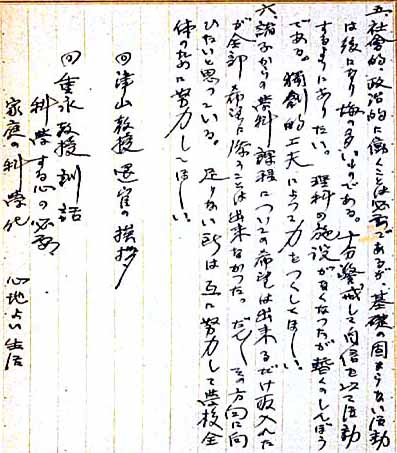 五、社会的、政治的に働くことは必要であるが、基礎の固まらない活動
は後になり悔多いものである。十分警戒して自信を以て活動
するようにありたい。理科の施設が良くなったが暫くのしんぼう
である。独創的工夫によって力をつくしてほしい。
六、諸子からの学科課程についての希望は出来るだけ取入れた
が全部希望に添うことは出来なかった。だがその方向に向
ひたいと思っている。足りない所は互に努力して学校全
体のために努力してほしい。
回 津山教授 退官の挨拶
回 重永教授 訓話
科学する心の必要
家庭の科学化 心地よい生活